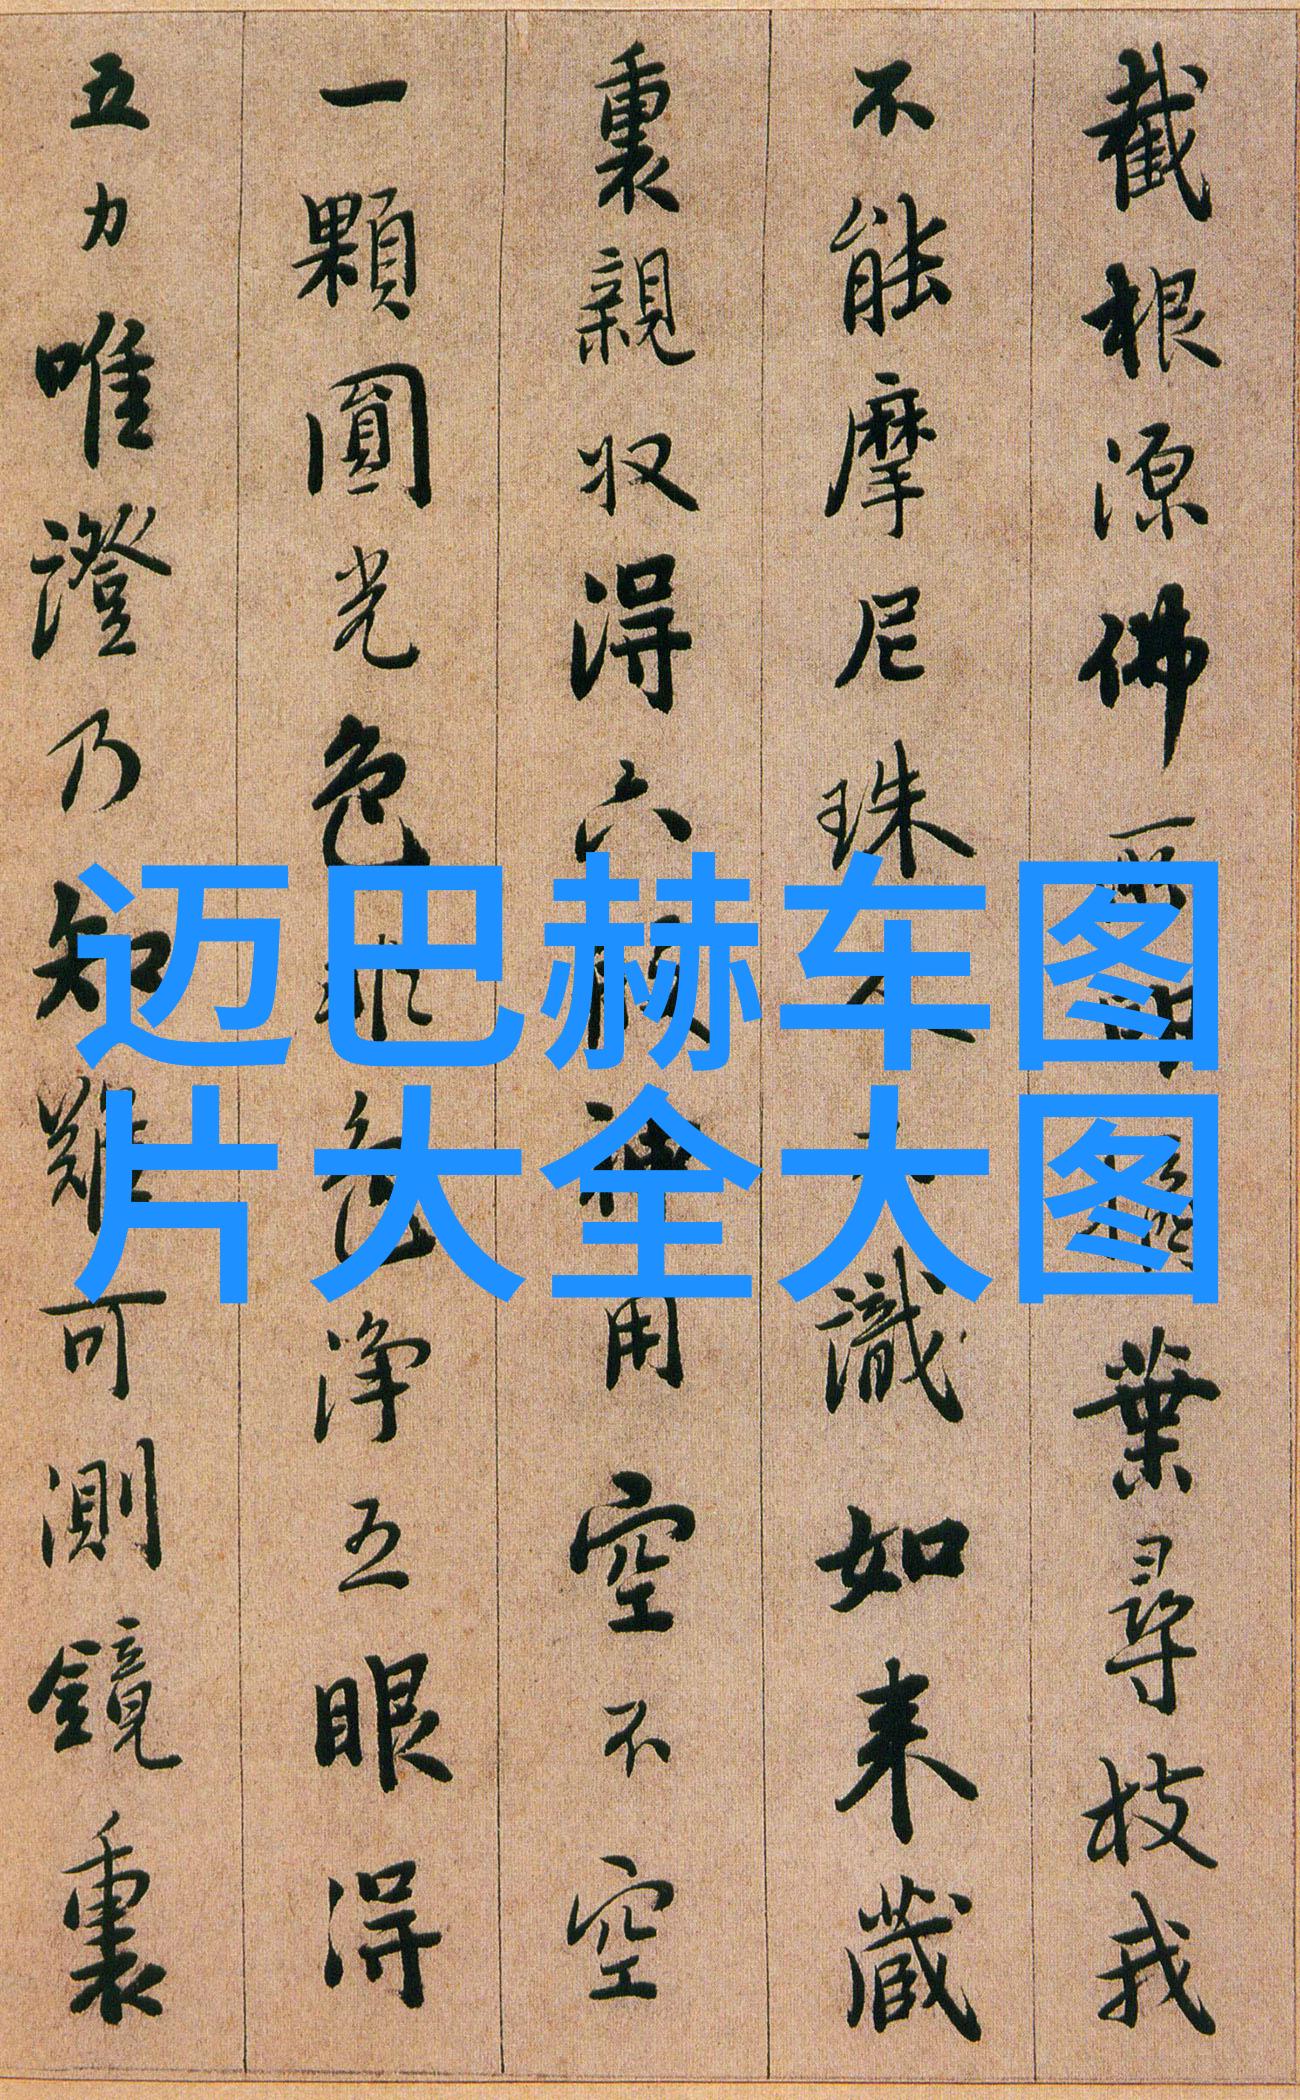 截根源佛葉尋枝我
不能摩尼珠識如来藏
裏親収得六用空不空
一顆圓光色非色淨五眼得
五力唯證乃知難可測鏡裏
迈巴赫车图
片大全大图